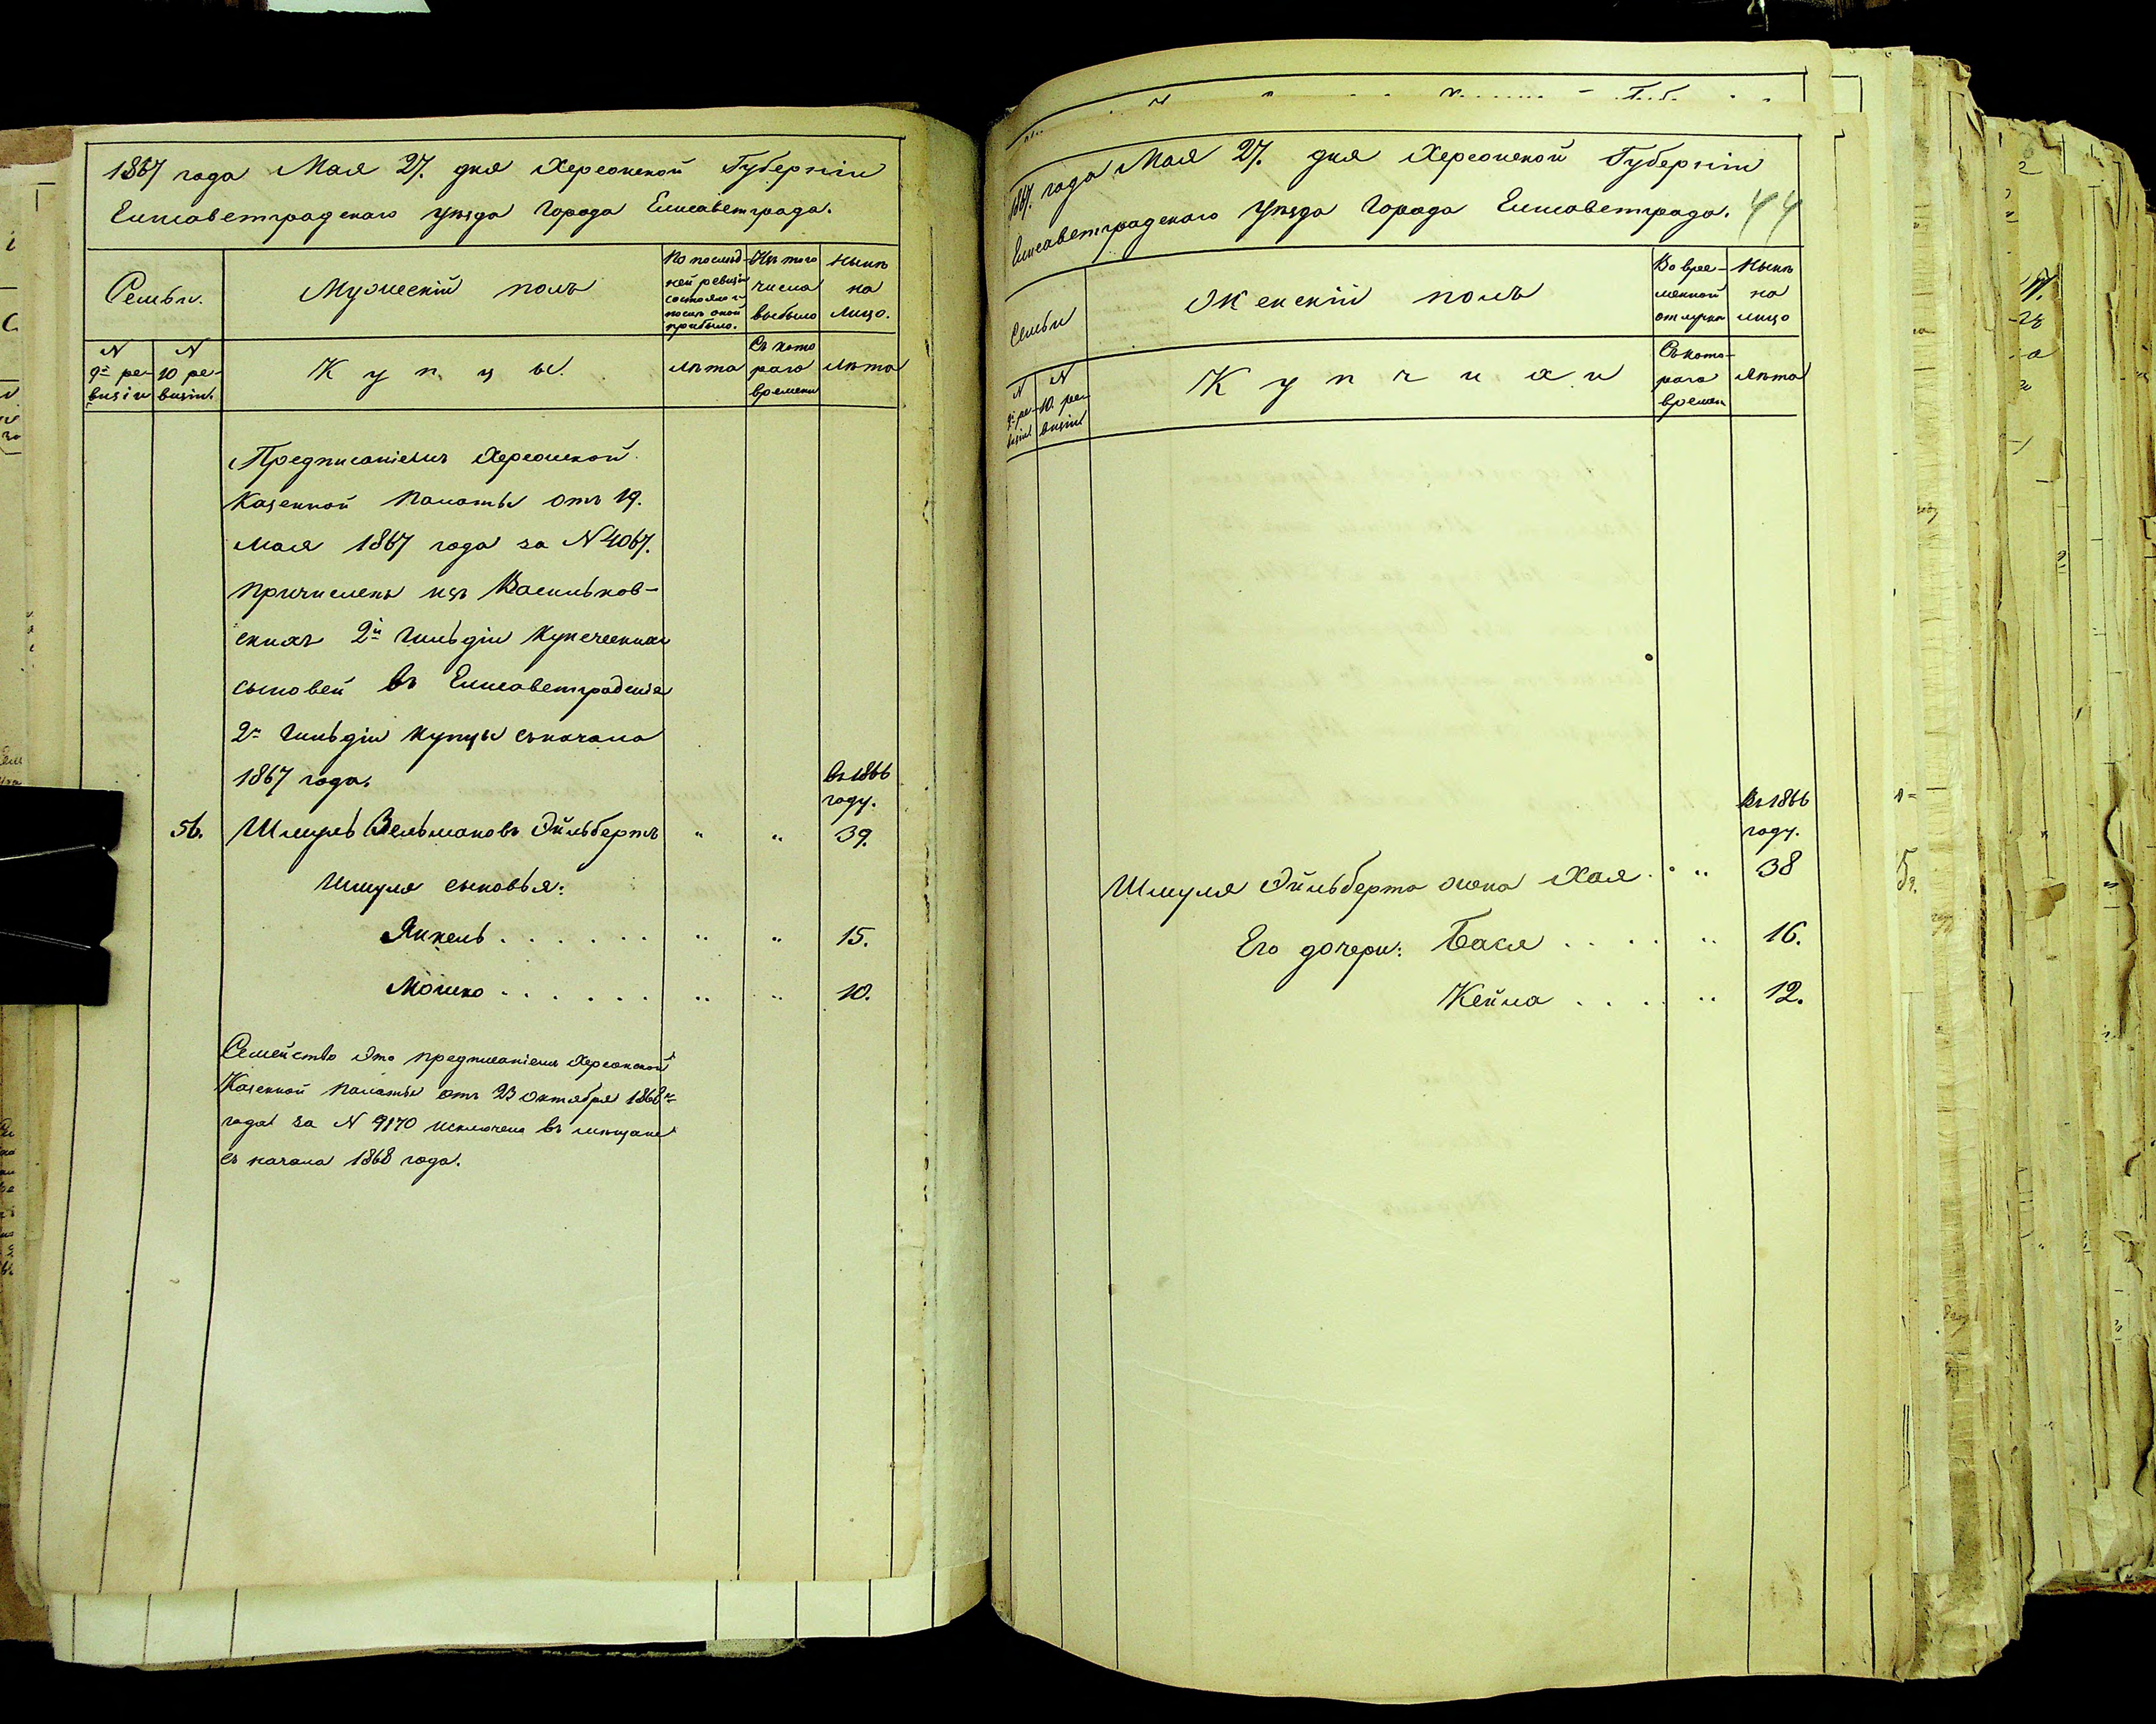 1867 года Мая 27. дня Херсонской Губерніи
Елисаветградскаго уѣзда Города Елисаветграда.
Семьи.
Мужескій полъ
По послѣд-
ней ревизіи
состояло и
послѣ оной
прибыло.
Изъ того
числа
выбыло
Нынѣ
на
лицо.
N
9й ре-
визіи
N
10 ре-
визіи.
Купцы.
лѣта
Съ кото
раго
времени
лѣта
Предписаніемъ Херсонской
Казенной Палаты отъ 19.
Мая 1867 года за N 4067.
причислены изъ Васильков-
скихъ 2й Гильдіи Купеческихъ
сыновей въ Елисаветградскіе
2й Гильдіи Купцы съ начала
1867 года.
въ 1866
году.
56. Шмуль Зельмановъ Эйльбертъ " " 39.
Шмуля сыновья:
Янкель . . . . . . " " 15.
Мошко . . . . . . " " 10.
Семейство это предписаніемъ Херсонской
Казенной Палаты отъ 23 Октября 1868го
года за N 9170 исключено въ мѣщане
съ начала 1868 года.
1867. года Мая 27. дня Херсонской Губерніи
Елисаветградскаго Уѣзда Города Елисаветграда. 44
Семьи
Женскій полъ
Во вре-
менной
отлучкѣ
Нынѣ
на
лицо
N
9й ре-
визіи
N
10. ре-
визіи
Купчихи
Съ кото-
раго
времен
лѣта
Въ 1866
году.
Шмуля Эйльберта жена Хая . . " 38
Его дочери: Бася . . . . " 16.
Кейла . . . . " 12.